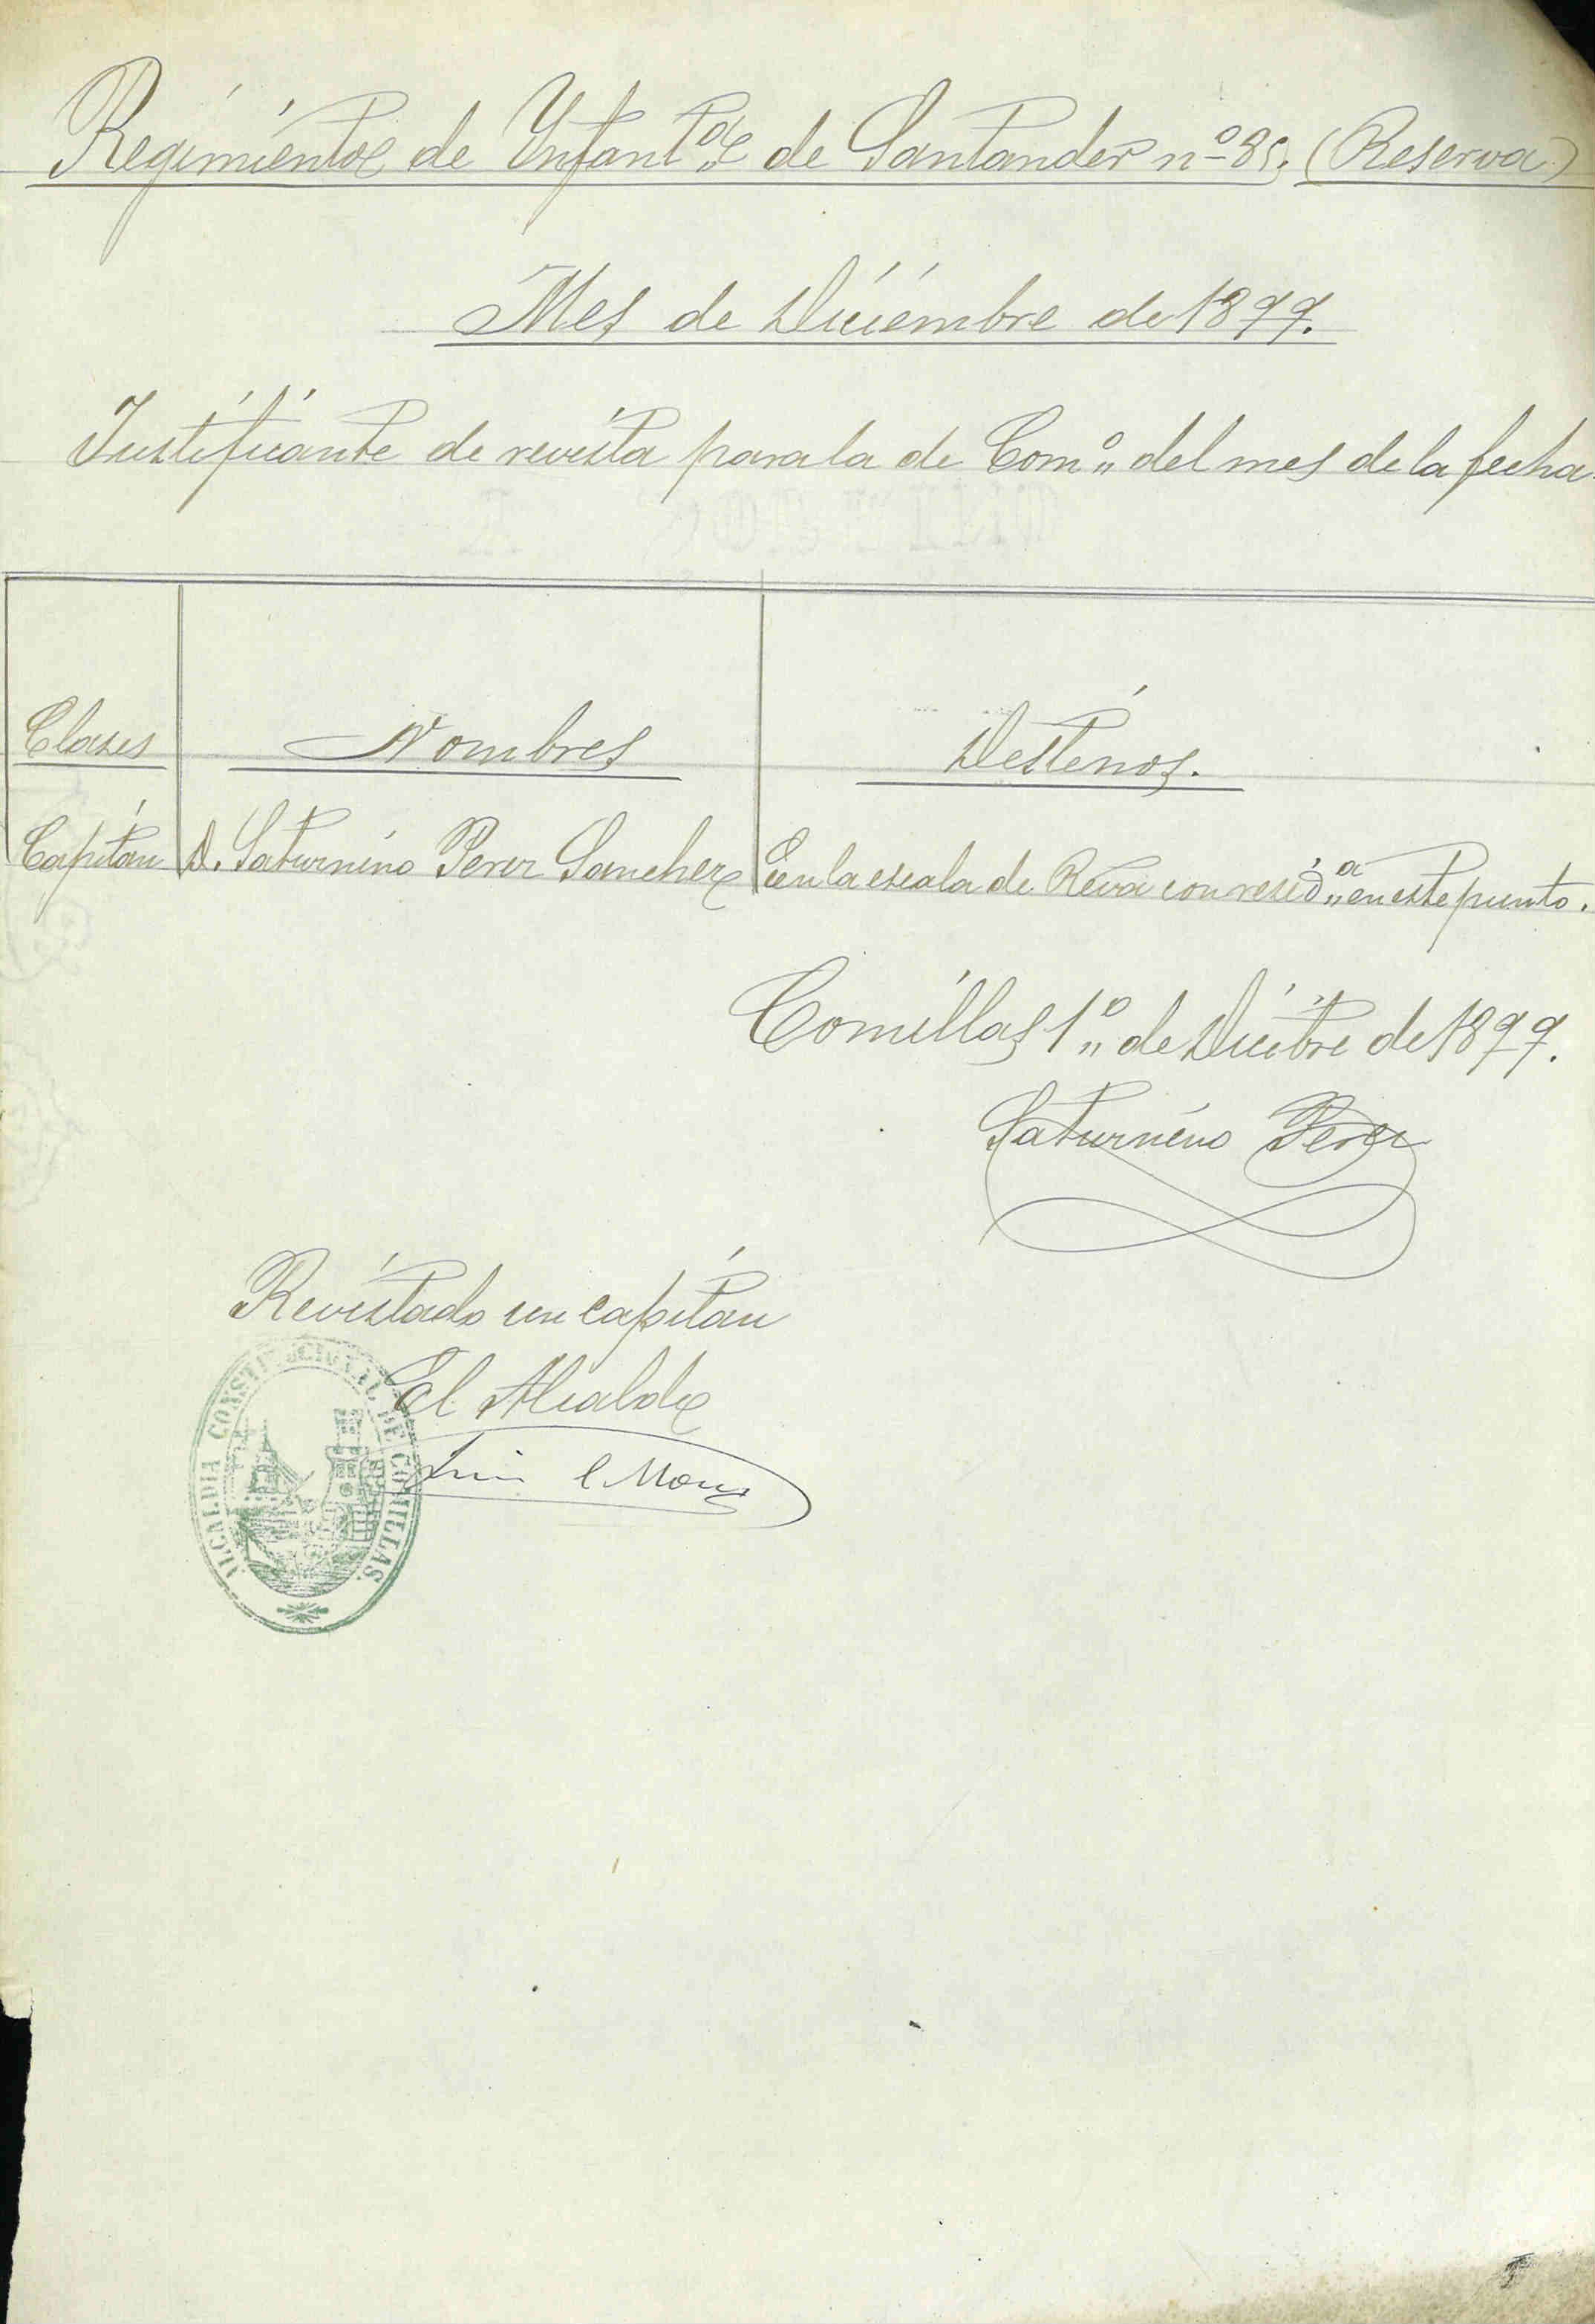 Regimiento de Infantª de Santander nº 85. (Reserva)
Mes de Diciembre de 1899.
Justificante de revista para la de Comº del mes de la fecha.
Clases Nombres Destinos.
Capitán D. Saturnino Perez Sanchez En la escala de Rva con residª en este punto.
Comillas 1º de Dicibre de 1899.
Saturnino Perez
Revistado un capitán
El Alcalde
ALCALDIA CONSTITUCIONAL DE COMILLAS.